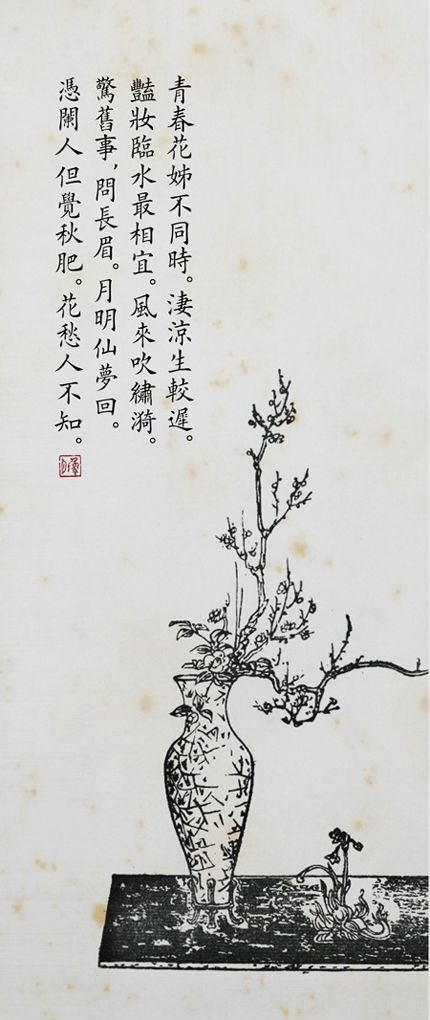 青春花姊不同時。淒涼生較遲。
豔妝臨水最相宜。風來吹繡漪。
驚舊事，問長眉。月明仙夢回。
憑闌人但覺秋肥。花愁人不知。